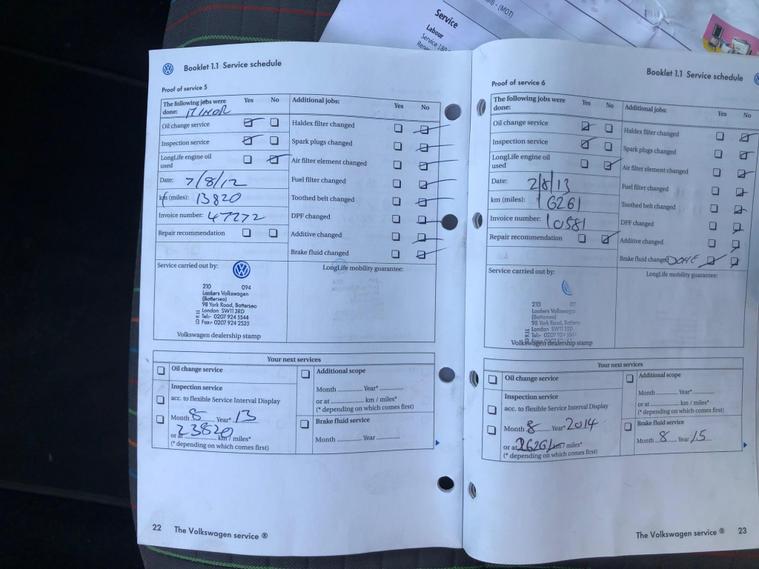 - (MOT)
Service
Labour
Booklet 1.1 Service schedule
Proof of service 5
The following jobs were done:
Yes No
MINOR
Oil change service
Inspection service
LongLife engine oil used
Date: 7/8/12
km (miles): 13820
Invoice number: 47272
Repair recommendation
Additional jobs:
Yes No
Haldex filter changed
Spark plugs changed
Air filter element changed
Fuel filter changed
Toothed belt changed
DPF changed
Additive changed
Brake fluid changed
Service carried out by:
LongLife mobility guarantee:
210 094
Lookers Volkswagen
(Battersea)
98 York Road, Battersea
London SW11 3RD
Tel:- 0207 924 5544
Fax:- 0207 924 2525
Volkswagen dealership stamp
Your next services
Oil change service
Inspection service
acc. to flexible Service Interval Display
Month 8 Year* 13
23820
or at km / miles*
(* depending on which comes first)
Additional scope
Month Year*
or at km / miles*
(* depending on which comes first)
Brake fluid service
Month Year
22 The Volkswagen service ®
Booklet 1.1 Service schedule
Proof of service 6
The following jobs were done:
Yes No
Oil change service
Inspection service
LongLife engine oil used
Date: 2/8/13
km (miles): 16261
Invoice number: 10581
Repair recommendation
Additional jobs:
Yes No
Haldex filter changed
Spark plugs changed
Air filter element changed
Fuel filter changed
Toothed belt changed
DPF changed
Additive changed
Brake fluid changed DONE
Service carried out by:
LongLife mobility guarantee:
210
Lookers Volkswagen
(Battersea)
98 York Road, Battersea
London SW11
Tel:- 0207 924
Volkswagen dealership stamp
Your next services
Oil change service
Inspection service
acc. to flexible Service Interval Display
Month 8 Year* 2014
or at 26261 km / miles*
(* depending on which comes first)
Additional scope
Month Year*
or at km / miles*
(* depending on which comes first)
Brake fluid service
Month 8 Year 15
The Volkswagen service ® 23